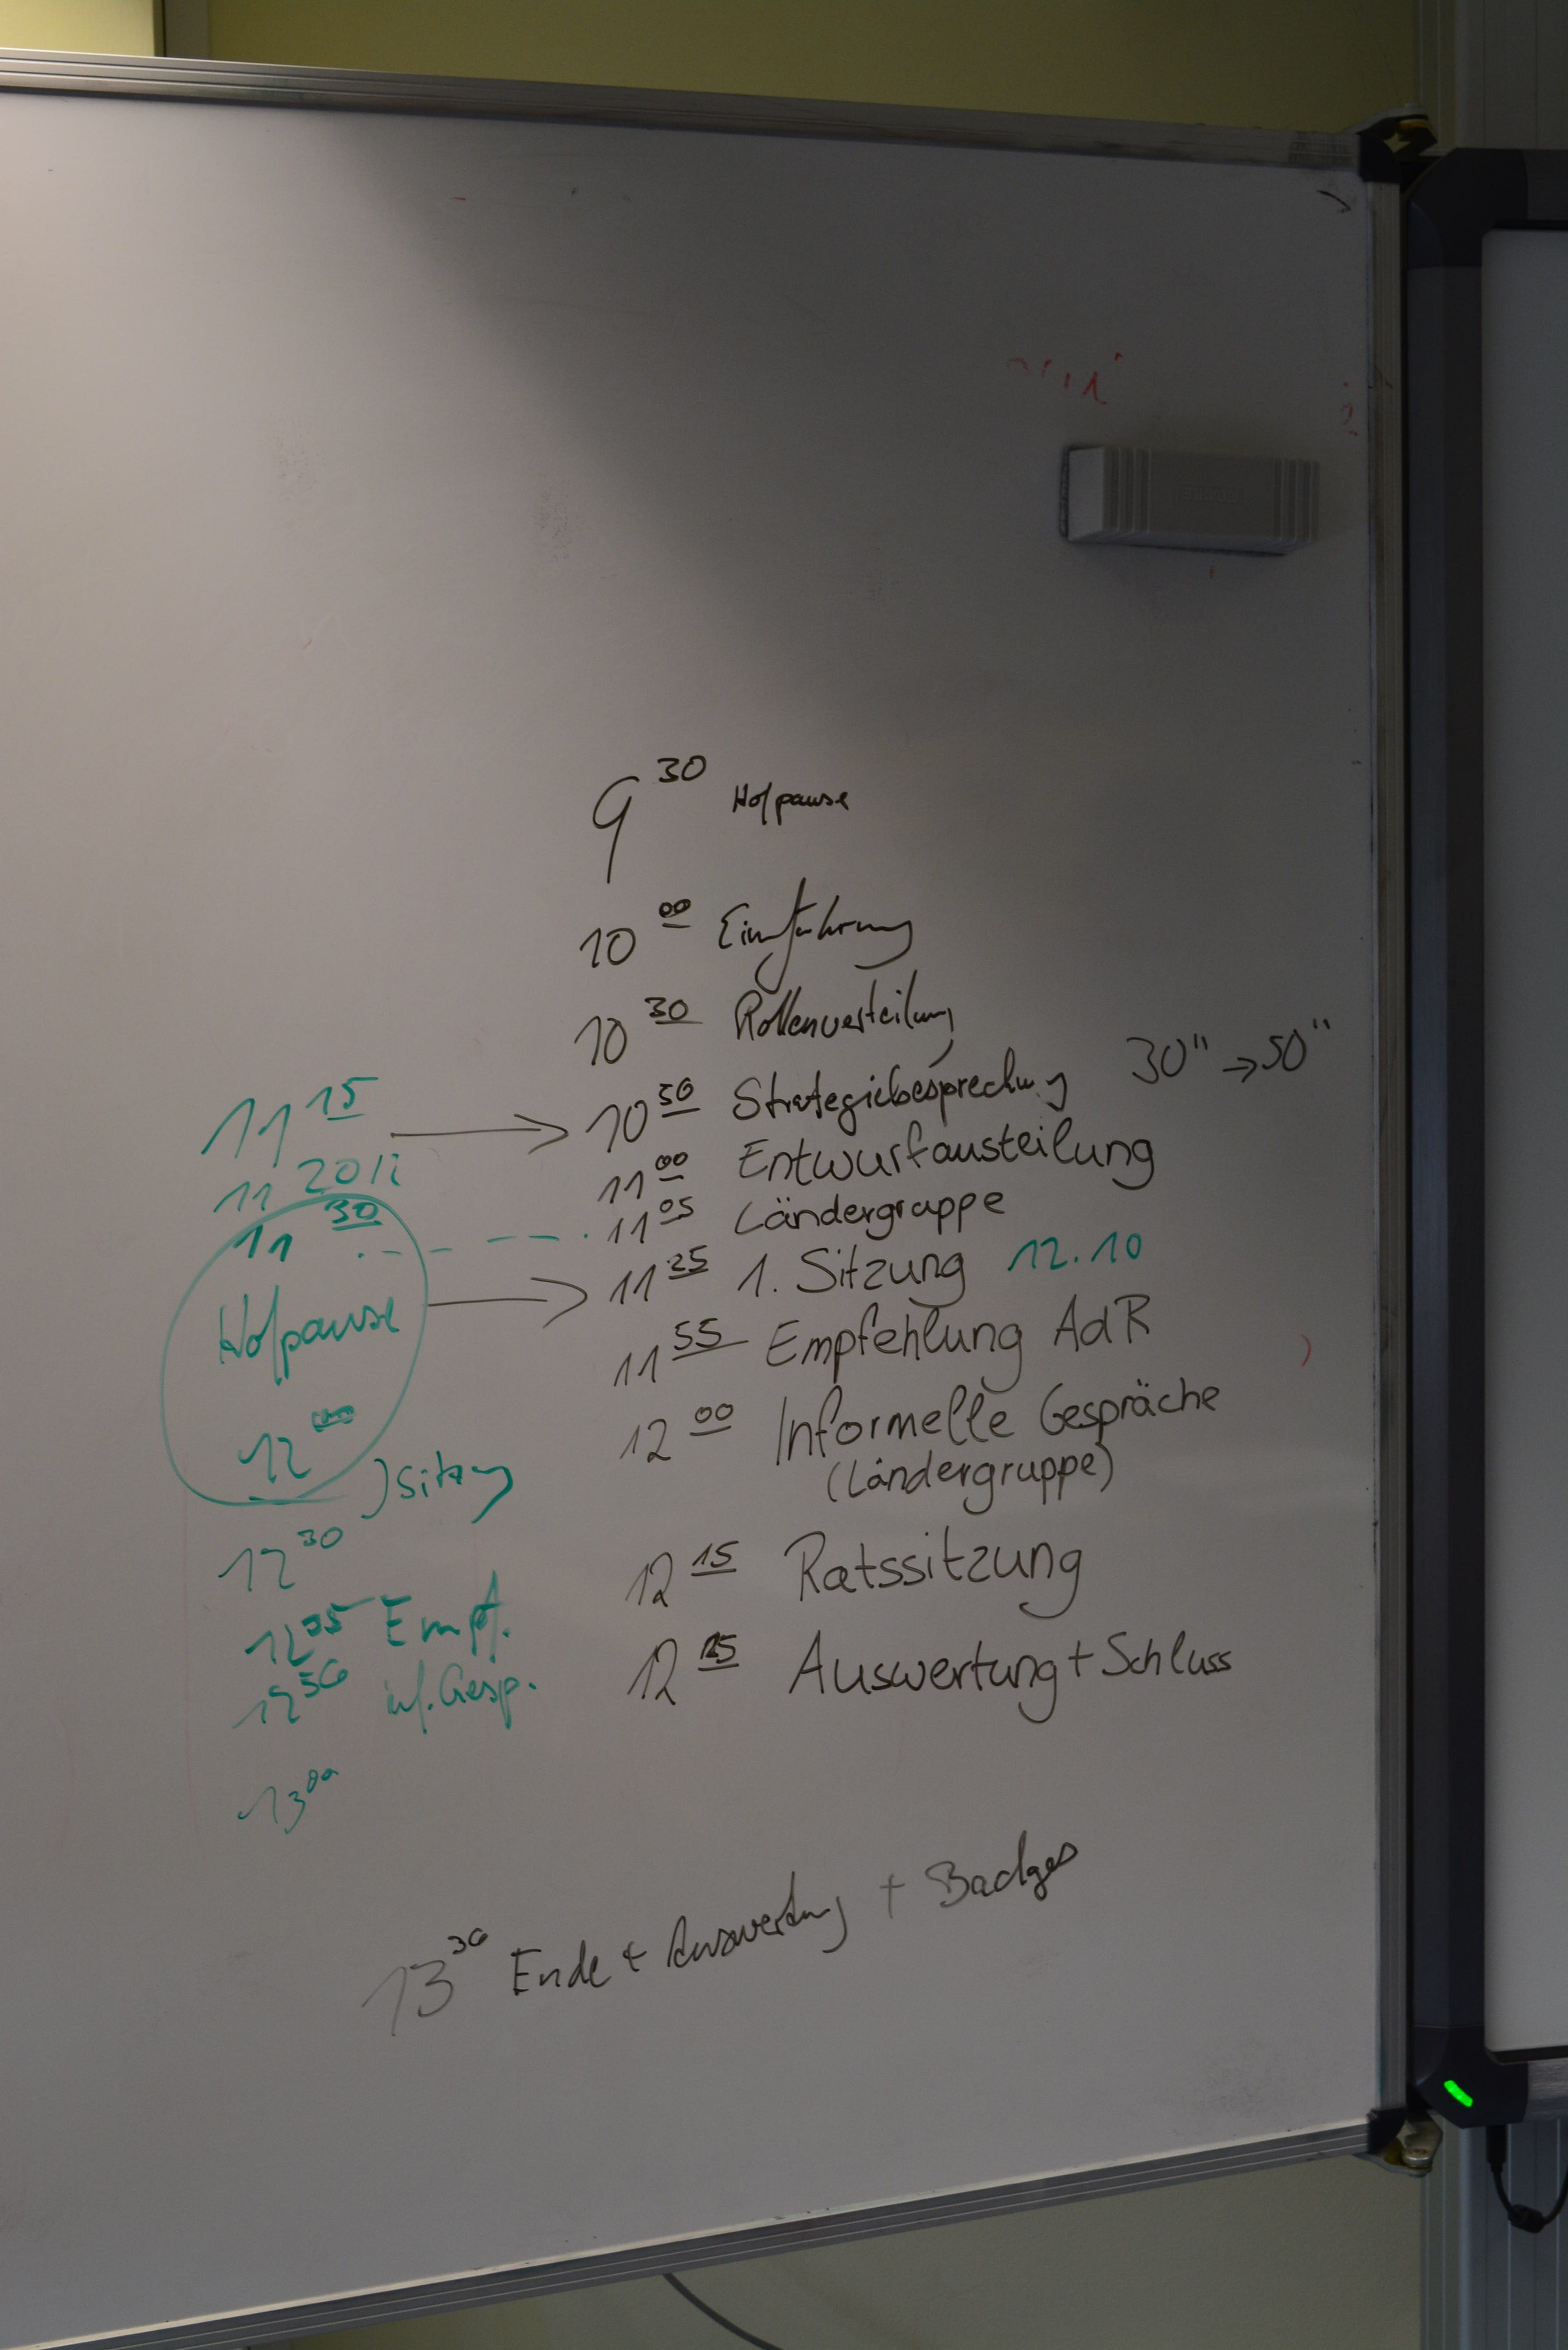 9 30 Hofpause
10 00 Einführung
10 30 Rollenverteilung
10 50 Strategiebesprechung 30" → 50"
11 00 Entwurfausteilung
11 05 Ländergruppe
11 35 1. Sitzung 12.10
11 55 Empfehlung AdR
12 00 Informelle Gespräche
(Ländergruppe)
12 15 Ratssitzung
12 Auswertung + Schluss
11 15
11 20
11 30
Hofpause
12 00
) Sitzung
12 30
12 35 Empf.
12 50 inf. Gesp.
13 00
13 30 Ende + Auswertung + Badges